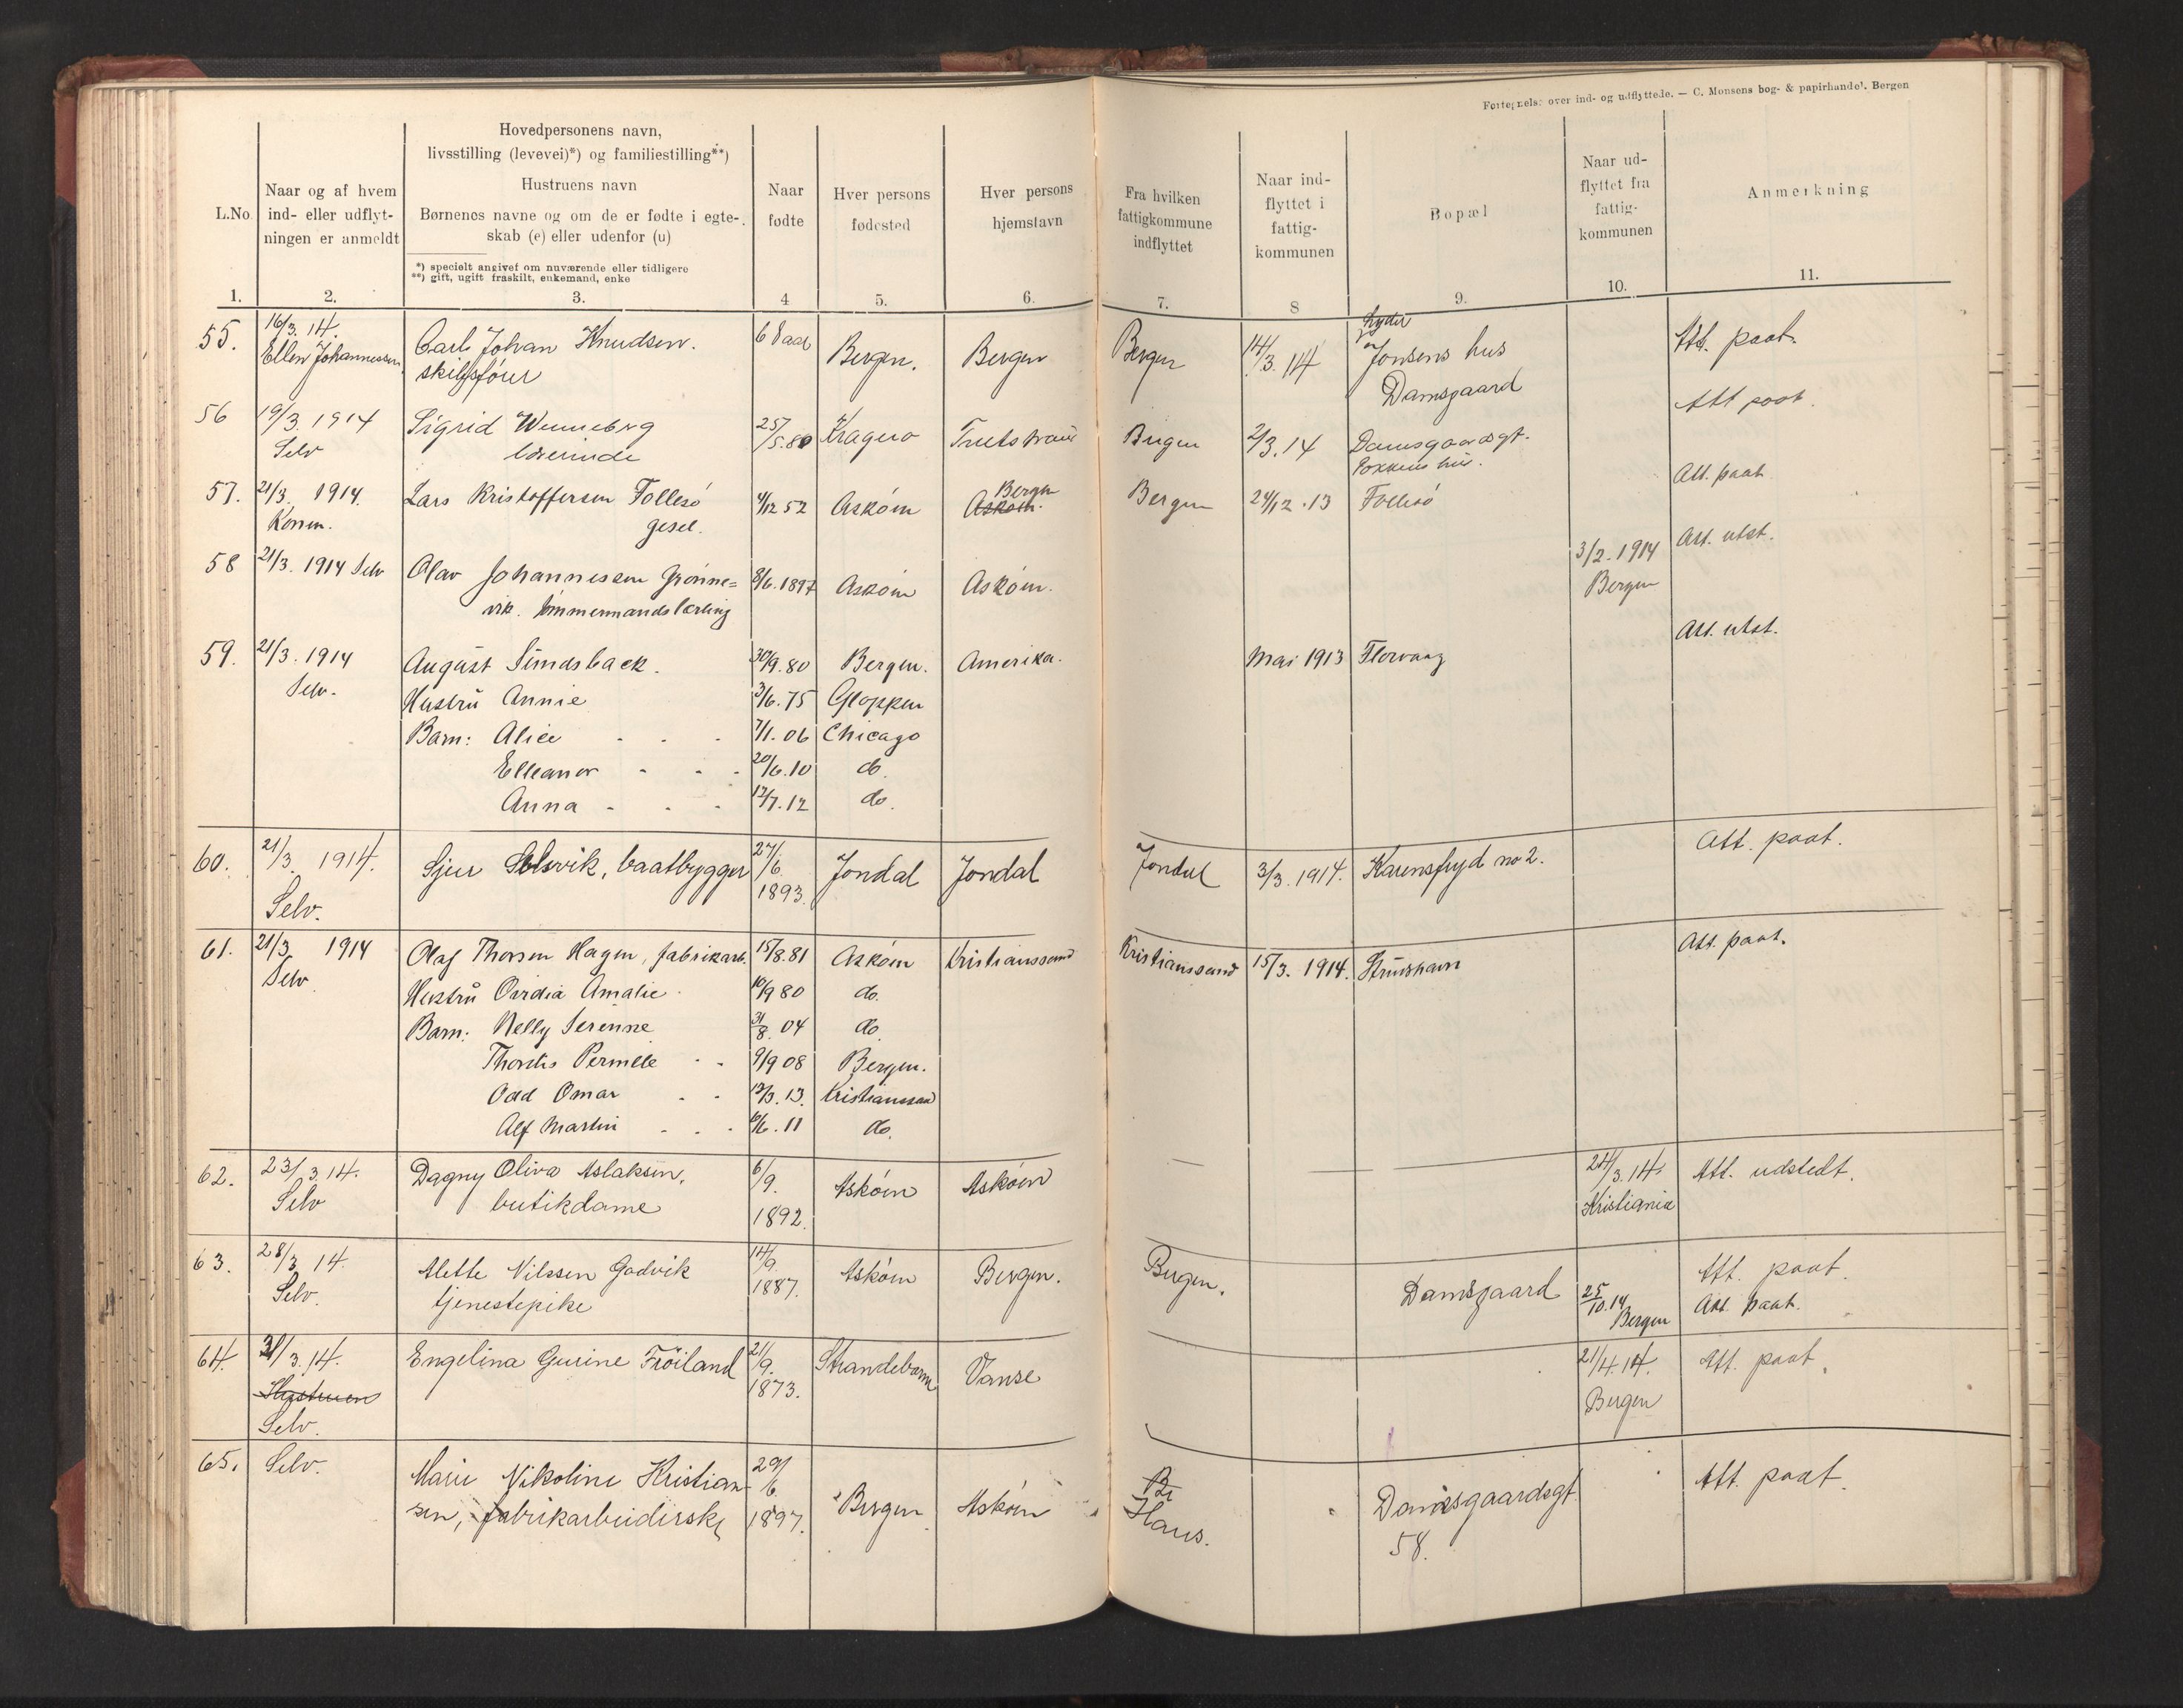 Fortegnelse over ind- og udflyttede. — C. Monsens bog- & papirhandel. Bergen
L.No
Naar og af hvem
ind- eller udflyt-
ningen er anmeldt
Hovedpersonens navn,
livsstilling (levevei)*) og familiestilling**)
Hustruens navn
Børnenes navne og om de er fødte i egte-
skab (e) eller udenfor (u)
*) specielt angivet om nuværende eller tidligere
**) gift, ugift fraskilt, enkemand, enke
Naar
fødte
Hver persons
fødested
Hver persons
hjemstavn
Fra hvilken
fattigkommune
indflyttet
Naar ind-
flyttet i
fattig-
kommunen
Bopæl
Naar ud-
flyttet fra
fattig-
kommunen
Anmerkning
1. 2. 3. 4 5. 6. 7. 8 9. 10. 11.
55. 16/3. 14. Carl Johan Knudsen. 68 aar Bergen. Bergen Bergen 14/3. 14 Jonsens hus Att. paat.
Ellen Johannessen skibsfører Damsgaard
56 19/3. 1914 Sigrid Wenneberg 25/5.80 Kragerø Bergen 2/3.14 Damsgaardsgt. Att paat.
Selv
57. 21/3. 1914. Lars Kristoffersen Follesö 4/12 52 Asköen Askøen. Bergen Bergen 24/12.13 Follesö Att. paat
Komm. gesel.
58 21/3. 1914 Selv Olav Johannessen Grönne= 8/6.1897 Asköen Asköen. 3/2. 1914 Att. utst.
vik. tømmermandslærling Bergen
59. 21/3. 1914 August Sundsback. 30/9.80 Bergen. Amerika. Mai 1913 Florvaag Att. utst.
Selv. Hustrü Annie 3/6.75 Gloppen
Barn: Alice - - - 7/1.06 Chicago
Elleanor - - - 20/6.10 do.
Anna - - - 12/7.12 do.
60. 21/3. 1914. Sjur Solsvik, baatbygger 27/6. 1893. Jondal Jondal Jondal 3/3. 1914. Karensfryd no 2. Att. paat.
Selv.
61. 21/3 1914 Olaf Thorsen Hagen, fabrikarb. 15/8.81 Asköen Kristianssand Kristianssand 15/3. 1914. Strüshavn Att. paat.
Selv Hustrü Ovidia Amalie 10/9 80 do.
Barn: Nelly Serenne 31/8. 04 do
Thordis Pernille - - 9/9 08 Bergen.
Odd Omar - - 12/3.13. Kristianssand
Alf Martin - - - 6/6.11 do.
62. 23/3.14. Dagny Oliva Aslaksen, 6/9. 1892. Asköen Asköen — — 24/3.14. Att. udstedt.
Selv butikdame Kristiania
63. 28/3 14. Alette Nilssen Godvik 14/9. 1887. Asköen Bergen. Bergen. Damsgaard 25/10.14 Bergen Att. paat.
Selv. tjenestepike Att paat.
64. 31/3.14. Engelina Gurine Fröiland 21/9. 1873. Strandebarm Vanse 21/4.14. Att. paat.
Hustruen Bergen
Selv.
65. Selv. Marie Nikoline Kristian- 29/6 1897. Bergen Asköen Be Haus. Damsgaardsgt. Att. paat.
sen, fabrikarbeiderske 58.